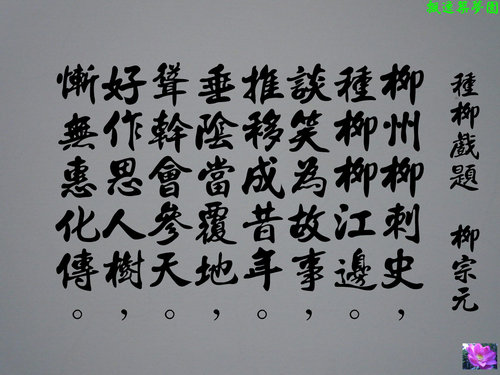 種柳戲題 柳宗元
柳州柳刺史，
種柳柳江邊。
談笑為故事，
推移成昔年。
垂陰當覆地，
聳幹會參天。
好作思人樹，
慚無惠化傳。